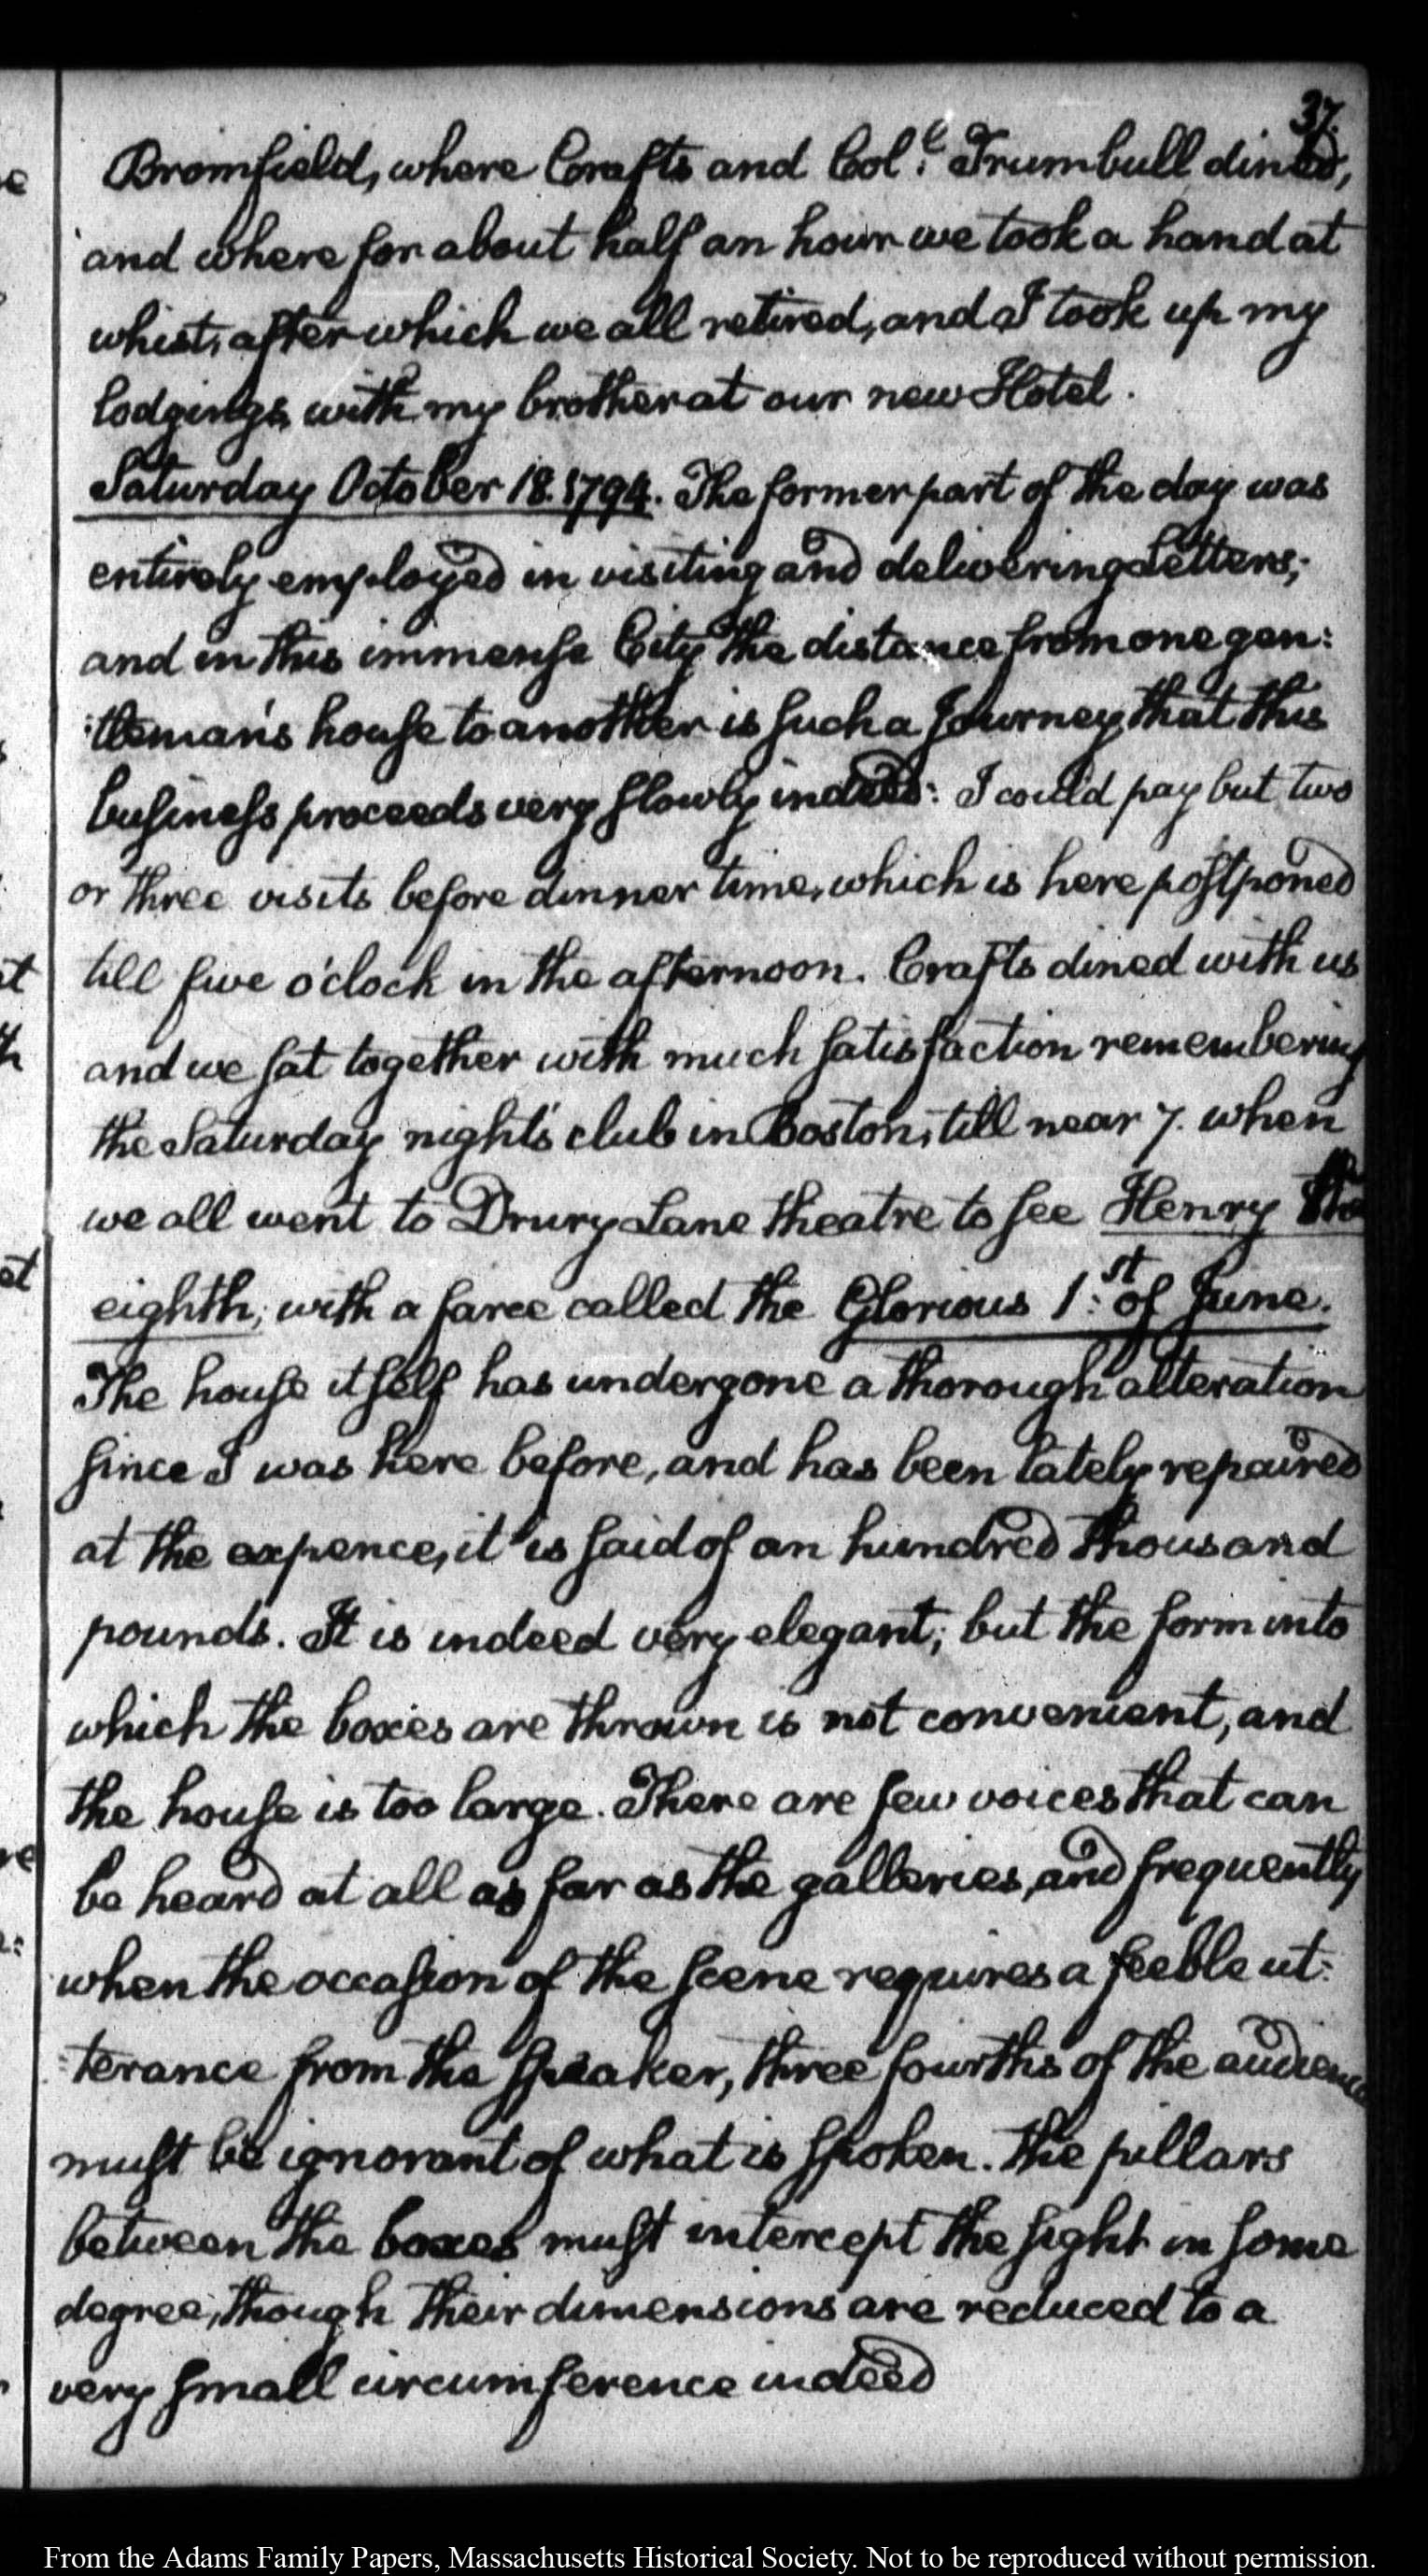 37.
Bromfield, where Crafts and Col:l Trumbull dined,
and where for about half an hour we took a hand at
whist, after which we all retired, and I took up my
lodgings with my brother at our new Hotel.
Saturday October 18. 1794. The former part of the day was
entirely employed in visiting and delivering Letters;
and in this immense City the distance from one gen:
:tleman's house to another is such a Journey, that this
business proceeds very slowly indeed: I could pay but two
or three visits before dinner time, which is here postponed
till five o'clock in the afternoon. Crafts dined with us
and we sat together with much satisfaction remembering
the Saturday night's club in Boston, till near 7. when
we all went to Drury Lane theatre to see Henry the
eighth, with a farce called the Glorious 1:st of June.
The house itself has undergone a thorough alteration
since I was here before, and has been lately repaired
at the expence, it is said of an hundred thousand
pounds. It is indeed very elegant; but the form into
which the boxes are thrown is not convenient, and
the house is too large. There are few voices that can
be heard at all as far as the galleries, and frequently
when the occasion of the scene requires a feeble ut:
:terance from the speaker, three fourths of the audience
must be ignorant of what is spoken. The pillars
between the boxes must intercept the sight in some
degree, though their dimensions are reduced to a
very small circumference indeed
From the Adams Family Papers, Massachusetts Historical Society. Not to be reproduced without permission.